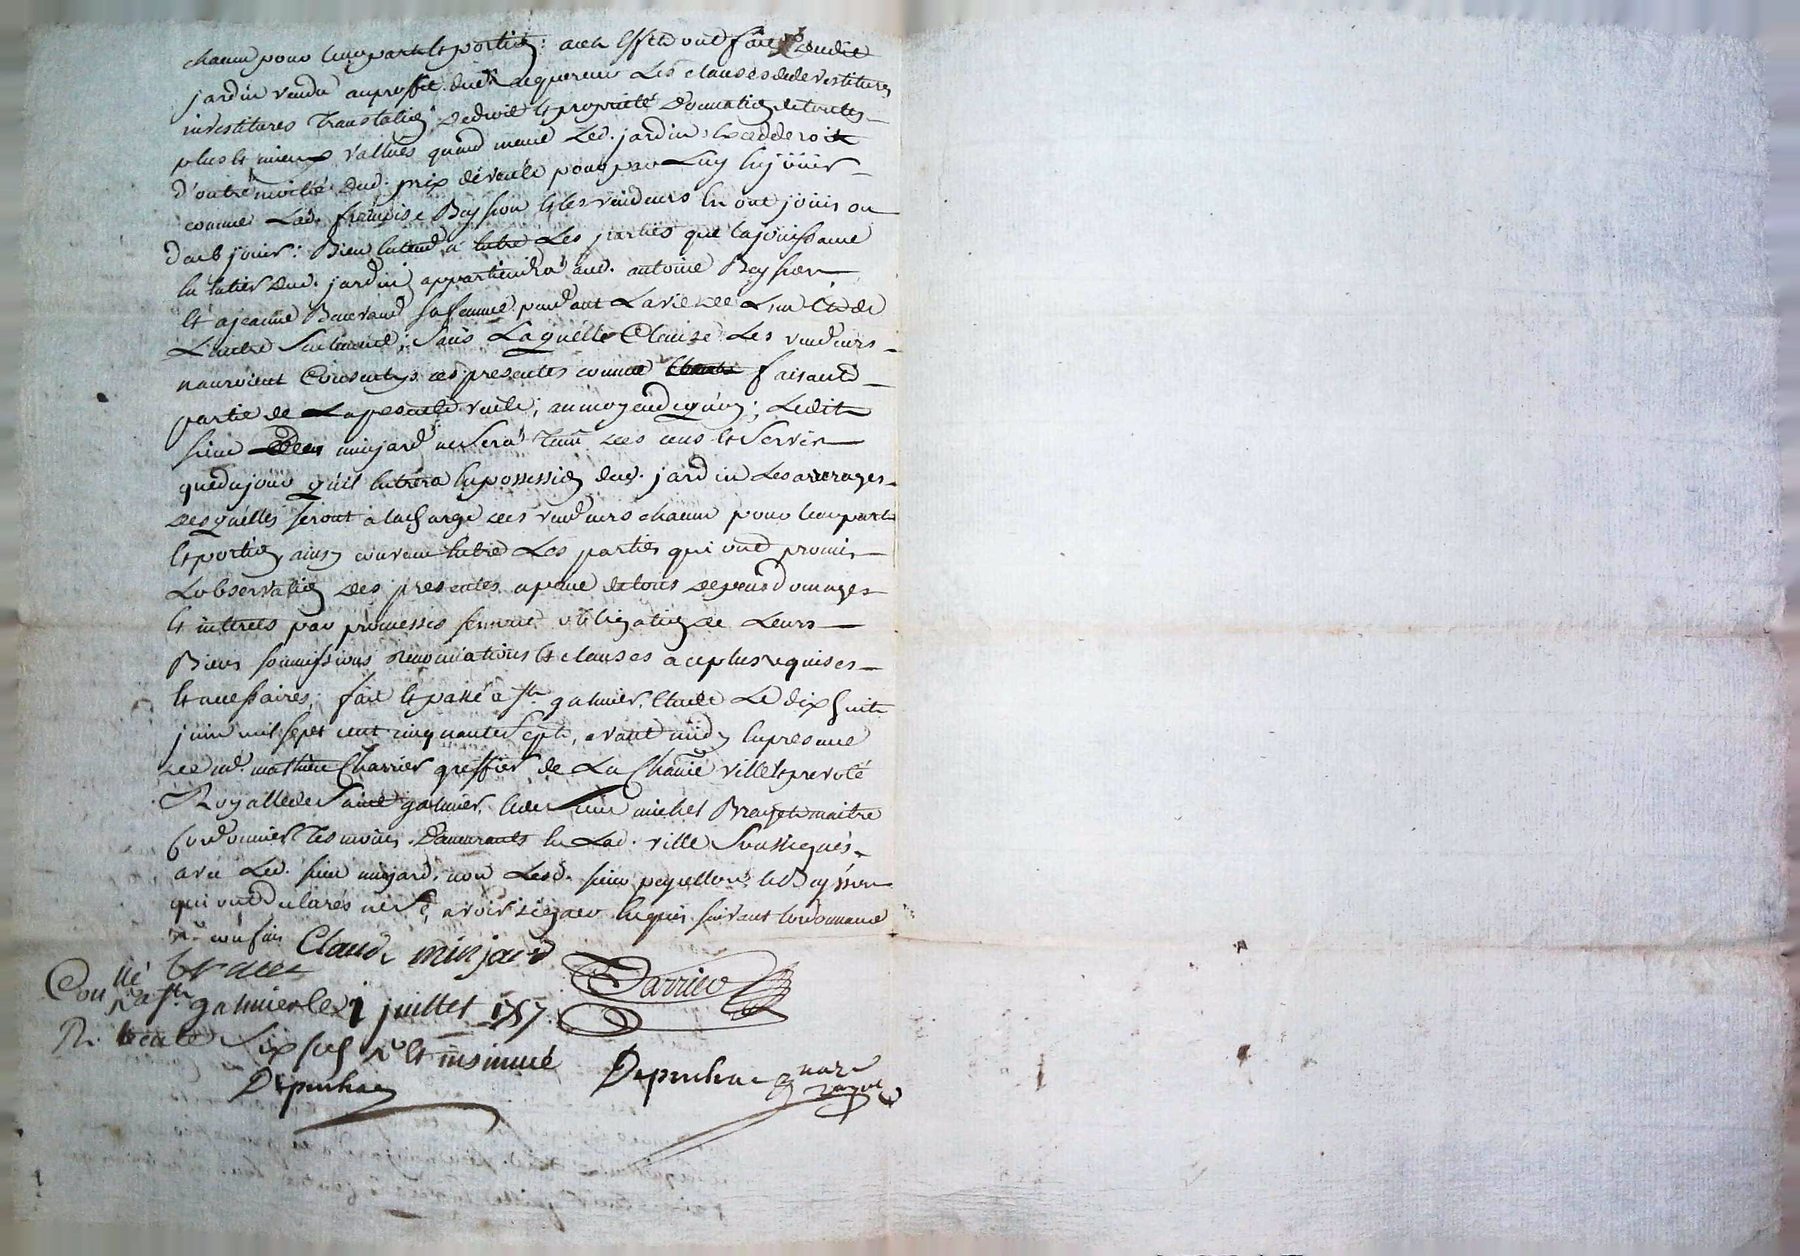 chacun pour leur part et portion : a cet effet ont fait dudit
jardin vendu au proffit dudt acquereur les clauses de devestitures
investitures translation de droit et propriété donnation de toutes
plus et mieux vallues quand meme led. jardin excedderoit
d'outre moitié dud. prix de vente pour par luy en joüir
comme lad. françoise Beysson et les vendeurs en ont joüis ou
deub joüir : Bien entendu entre les parties que la joüissance
en entier dud. jardin appartiendra aud. antoine Beysson
et a jeanne sa femme pendant la vie de l'un et de
l'autre seulement ; sans laquelle clause les vendeurs
n'auroient consenty ces presentes comme faisant
partie de la presente vente ; au moyen de quoy ; ledit
sieur minjard ne sera tenu des cens et servis
que du jour qu'il entrera en possession dud. jardin les arrerages
desquelles seront a la charge des vendeurs chacun pour leur part
et portion ainsy convenu entre les parties qui ont promis
l'observation des presentes a peine de tous depens domages
et interets par promesses serment obligation de leurs
Biens soumissions renonciations et clauses a ce plus requises
et necessaires ; fait et passé a st galmier, etude le dix huit
juin mil sept cent cinquante sept, avant midy en presence
de me. mathieu Charrier greffier de la ville et prevoté
Royalle de Saint galmier, et de sieur michel Bruyet maitre
Cordonnier tesmoins demeurants en lad. ville soussignés
avec led. sieur minjard, non lesd. sieur peyrellon et Beysson
qui ont declarés ne sçavoir signer enquis suivant l'ordonnance
Claude minjard
Charrier
Conllé a st galmier le 1 juillet 1757
R. trente six sols et insinué
Depunhac Depunhac